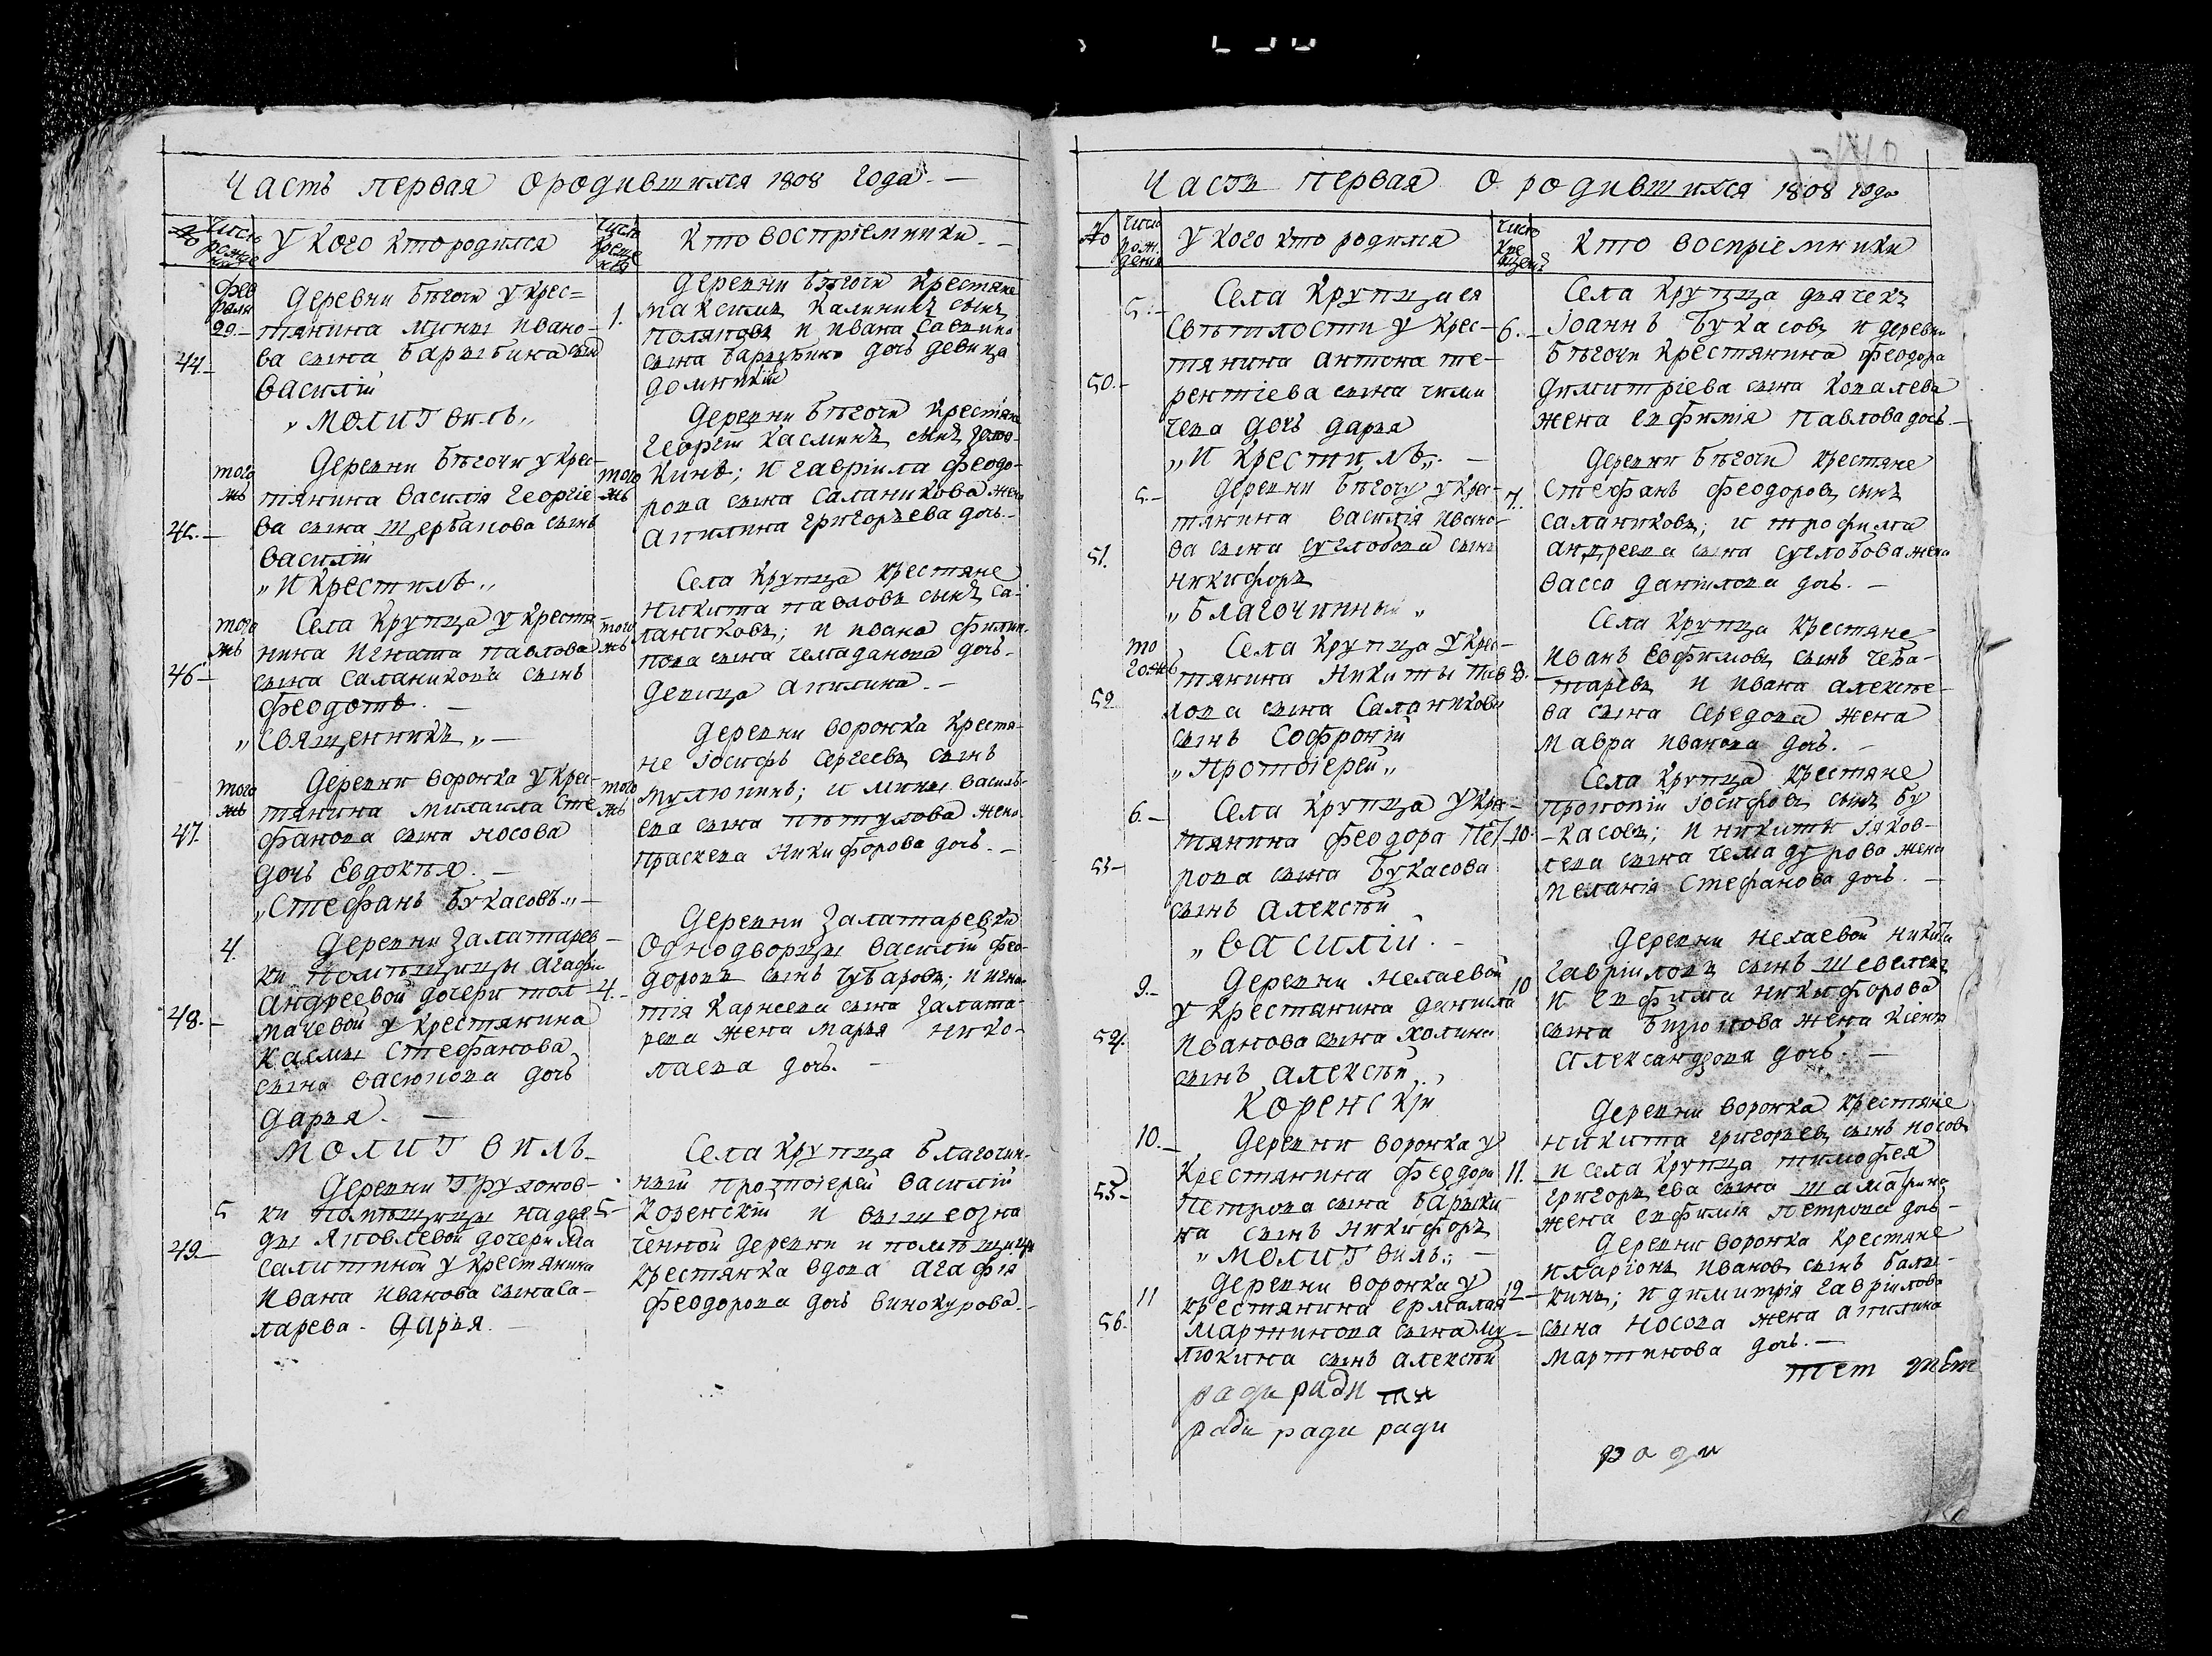 Часть первая ородившихся 1808 года. —
№
Число рожде нія
У кого кто родился
Число креще нія
Кто воспріемники. —
Фев раля 29. —
44. —
Деревни Бѣгочи у крес=
тянина Мины Ивано-
ва сына Барыбина сынъ
Василій
„ Молитвилъ „
1.
Деревни Бѣгочи крестяне
Максимъ Калиникъ сынъ
Поляковъ и Ивана Саввина
сына Барыбина дочь девица
Домникія
того жъ
45. —
Деревни Бѣгочи у крес-
тянина Василія Георгіе
ва сына Щербакова сынъ
Василій
„ И крестилъ „
того жъ
Деревни Бѣгочи крестяне
Георгій Касминъ сынъ
кинъ; и Гавріила Феодо-
рова сына Саланикова жена
Акилина Григорьева дочь. —
того жъ
46 —
Села Крупца у крестя
нина Игната Павлова
сына Саланикова сынъ
Феодотъ. —
„ Священникъ „ —
того жъ
Села Крупца крестяне
Никита Павловъ сынъ Са-
ланиковъ; и Ивана Филип-
пова сына Чемаданова дочь
девица Акилина. —
того жъ
47.
Деревни Ворожка у крес-
тянина Михаила Сте
фанова сына Носова
дочь Евдокья. —
„ Стефанъ Букасовъ „ —
того жъ
Деревни Ворожка крестя-
не Іосифъ Сергеевъ сынъ
Мулюкинъ; и Мины Василь-
ева сына Пѣтухова жена
Праскева Никифорова дочь. —
4.
48. —
Деревни Залатарев —
ки помѣщицы Агафьи
Андреевой дочери Тол
мачевой у крестянина
Касмы Стефанова
сына Васюкова дочь
Дарья. —
Молитвилъ —
4. —
Деревни Залатаревки
однодворцы Василій Фео-
доровъ сынъ Чубаровъ; и Игна-
тія Карнеева сына Залата-
рева жена Марья Нико-
лаева дочь. —
5
49. —
Деревни Трухонов-
ки помѣщицы Надеж
ды Яковлевой дочери Ма
салитиной у крестянина
Ивана Иванова сына Са-
харева. Дарья. —
5 —
Села Крупца Благочин-
ный протоіерей Василій
Козенскій и вышеозна
ченной деревни и помѣщицы
крестянка вдова Агафія
Феодорова дочь Винокурова. —
Часть первая о родившихся 1808 года
№
Число рож. денія
У кого кто родился
Число кре щенія
Кто воспріемники
5. —
50. —
Села Крупца ея
свѣтлости у крес-
тянина Антона Те-
рентіева сына Чими
чева дочь Дарья
„ И крестилъ „ —
6. —
Села Крупца дьячекъ
Іоаннъ Букасовъ и деревни
Бѣгочи крестянина Феодора
Димитріева сына Ковалева
жена Евфимія Павлова дочь —
5 —
51.
Деревни Бѣгочи у крес-
тянина Василія Ивано-
ва сына Суглобова сынъ
Никифоръ
„ Благочинный „
7.
Деревни Бѣгочи крестяне
Стефанъ Феодоровъ сынъ
Саланиковъ; и Трофима
Андреева сына Суглобова жена
Васса Данилова дочь. —
то гожъ
52
Села Крупца у крес —
тянина Никиты Пав
лова сына Саланикова
сынъ Софроній
„ Протоіерей „
8.
Села Крупца крестяне
Иванъ Евфимовъ сынъ Чеба-
таревъ и Ивана Алексѣе-
ва сына Середова жена
Мавра Иванова дочь. —
6. —
53 —
Села Крупца у крес —
тянина Феодора Пет
рова сына Букасова
сынъ Алексѣй
„ Василій. —
10 —
Села Крупца крестяне
Прокопій Іосифовъ сынъ Бу
касовъ; и Никиты Іяков-
лева сына Чемадурова жена
Меланія Стефанова дочь. —
9. —
54.
Деревни Нехаевой
у крестянина Данила
Иванова сына Холина
сынъ Алексѣй.
Коренскій
10
Деревни Нехаевой Никита
Гавріиловъ сынъ Шевелевъ
и Евфима Никифорова
сына Бизюкова жена Ксенія
Александрова дочь. —
10. —
55 —
Деревни Ворожка у
крестянина Феодора
Петрова сына Барыки
на сынъ Никифоръ
„ Молитвилъ „ —
11. —
Деревни Ворожка крестяне
Никита Григорьевъ сынъ Носовъ
и села Крупца Тимофея
Григорьева сына Шамарина
жена Евфимія Петрова дочь —
11
56.
Деревни Ворожка у
крестянина Ермалая
Мартинова сына Му —
люкина сынъ Алексѣй
12 —
Деревни Ворожка крестяне
Иларіонъ Ивановъ сынъ Балы-
кинъ; и Димитрія Гавріилова
сына Носова жена Акилина
Мартинова дочь. —
ради ради
ради ради ради
ради